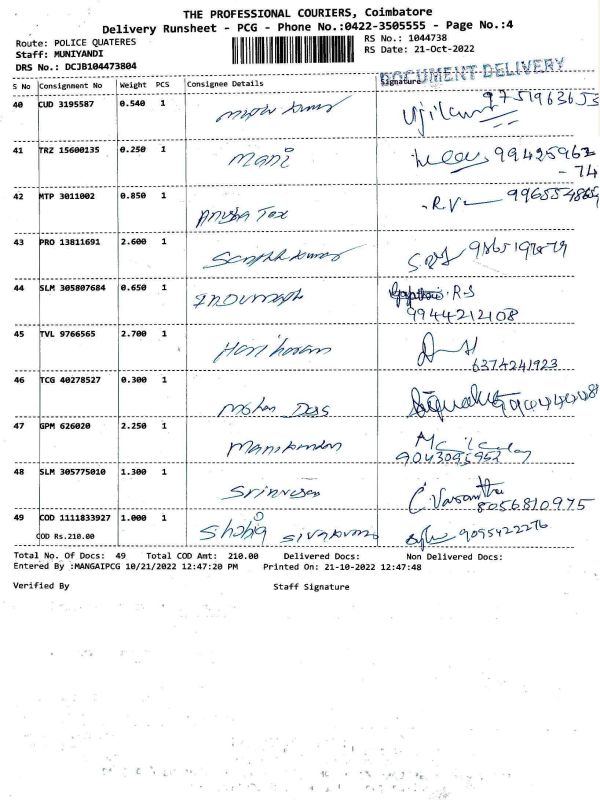 THE PROFESSIONAL COURIERS, Coimbatore
Delivery Runsheet - PCG - Phone No.:0422-3505555 - Page No.:4
Route: POLICE QUATERES
RS No.: 1044738
Staff: MUNIYANDI
RS Date: 21-Oct-2022
DRS No.: DCJB104473804
DOCUMENT DELIVERY
S No Consignment No Weight PCS Consignee Details Signature
40 CUD 3195587 0.540 1
41 TRZ 15600135 0.250 1 Mani
42 MTP 3011002 0.850 1 Anusha Tax R.V
43 PRO 13811691 2.600 1
44 SLM 305807684 0.650 1 R.S
9944212108
45 TVL 9766565 2.700 1 Hari haran
6374241923
46 TCG 40278527 0.300 1 Mohan Das
47 GPM 626020 2.250 1 Manikandan
48 SLM 305775010 1.300 1 Srinivasan C. Vasantha
8056810975
49 COD 1111833927 1.000 1 sivakumar 9095422276
COD Rs.210.00
Total No. Of Docs: 49 Total COD Amt: 210.00 Delivered Docs: Non Delivered Docs:
Entered By :MANGAIPCG 10/21/2022 12:47:20 PM Printed On: 21-10-2022 12:47:48
Verified By Staff Signature